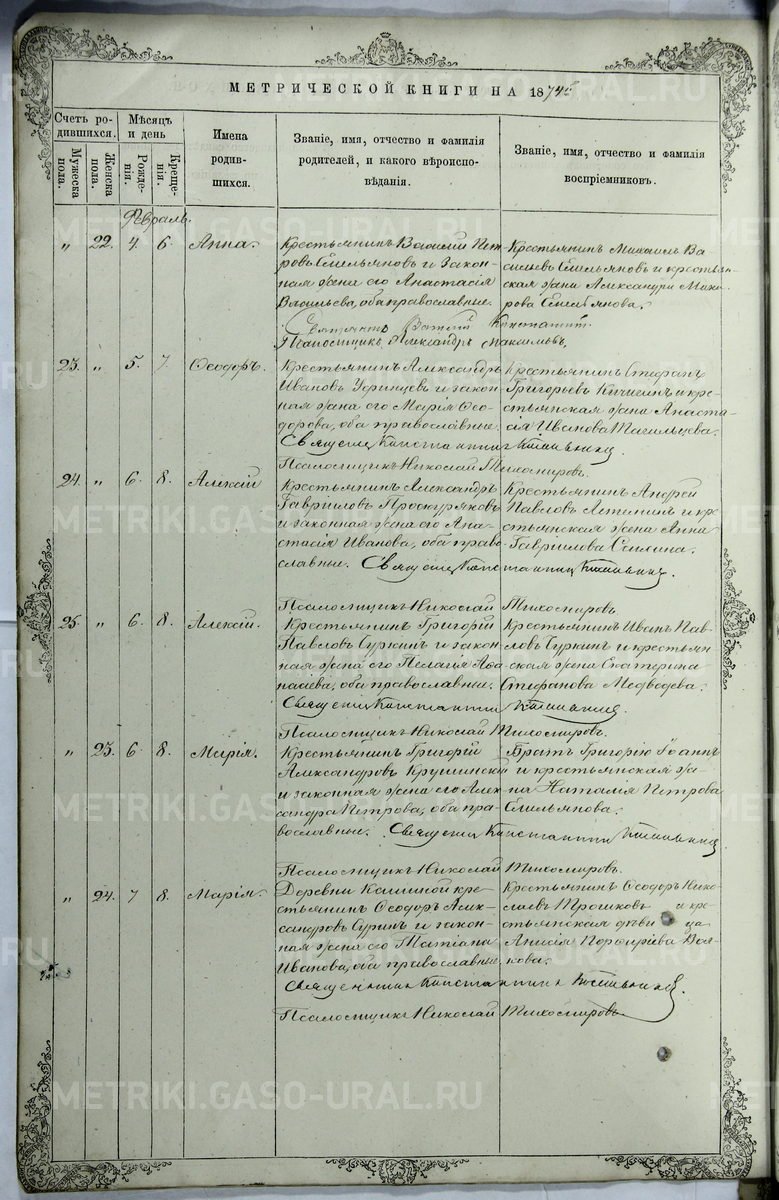 МЕТРИЧЕСКОЙ КНИГИ НА 1874
Счетъ родившихся.
Мужеска пола.
Женска пола.
Мѣсяцъ и день
Рожденія.
Крещенія.
Имена родившихся.
Званіе, имя, отчество и фамилія родителей, и какого вѣроисповѣданія.
Званіе, имя, отчество и фамилія воспріемниковъ.
Февраль.
„ 22. 4. 6. Анна.
Крестьянинъ Василій Пет-
ровъ Емельяновъ и закон-
ная жена его Анастасія
Васильева, оба православные.
Крестьянинъ Михаилъ Ва-
сильевъ Емельяновъ и крестьян-
ская жена Александра
Емельянова.
Псаломщикъ Александръ
23. „ 5. 7. Ѳеодоръ.
Крестьянинъ Александръ
Ивановъ и закон-
ная жена его Марія Ѳео-
дорова, оба православные.
Крестьянинъ Стефанъ
Григорьевъ Кичигинъ и кре-
стьянская жена Анаста-
сія Иванова Тагильцева.
Священникъ Константинъ
Псаломщикъ Николай Тихомировъ.
24. „ 6. 8. Алексій
Крестьянинъ Александръ
Гавриловъ Проскуряковъ
и законная жена его Ана-
стасія Иванова, оба право-
славные.
Крестьянинъ Андрей
Павловъ и кре-
стьянская жена Анна
Гаврилова
Священникъ Константинъ
Псаломщикъ Николай Тихомировъ.
25. „ 6. 8. Алексій.
Крестьянинъ Григорій
Павловъ Суркинъ и закон-
ная жена его Пелагія Аѳа-
насіева, оба православные.
Крестьянинъ Иванъ Пав-
ловъ Суркинъ и крестьян-
ская жена Екатерина
Стефанова Медведева.
Священникъ Константинъ
Псаломщикъ Николай Тихомировъ.
„ 23. 6. 8. Марія.
Крестьянинъ Григорій
Александровъ Крушинскій
и законная жена его Алек-
сандра Петрова, оба пра-
вославные.
Братъ Григорію Іоаннъ
и крестьянская же-
на Наталія Петрова
Емельянова.
Священникъ Константинъ
Псаломщикъ Николай Тихомировъ.
„ 24. 7 8. Марія.
Деревни кре-
стьянинъ Ѳеодоръ Алек-
сандровъ Суринъ и закон-
ная жена его Татіана
Иванова, оба православные.
Крестьянинъ Ѳеодоръ Нико-
лаевъ Трошковъ и кре-
стьянская девица
Анисія Порфиріева
Священникъ Константинъ
Псаломщикъ Николай Тихомировъ.
METRIKI.GASO-URAL.RU